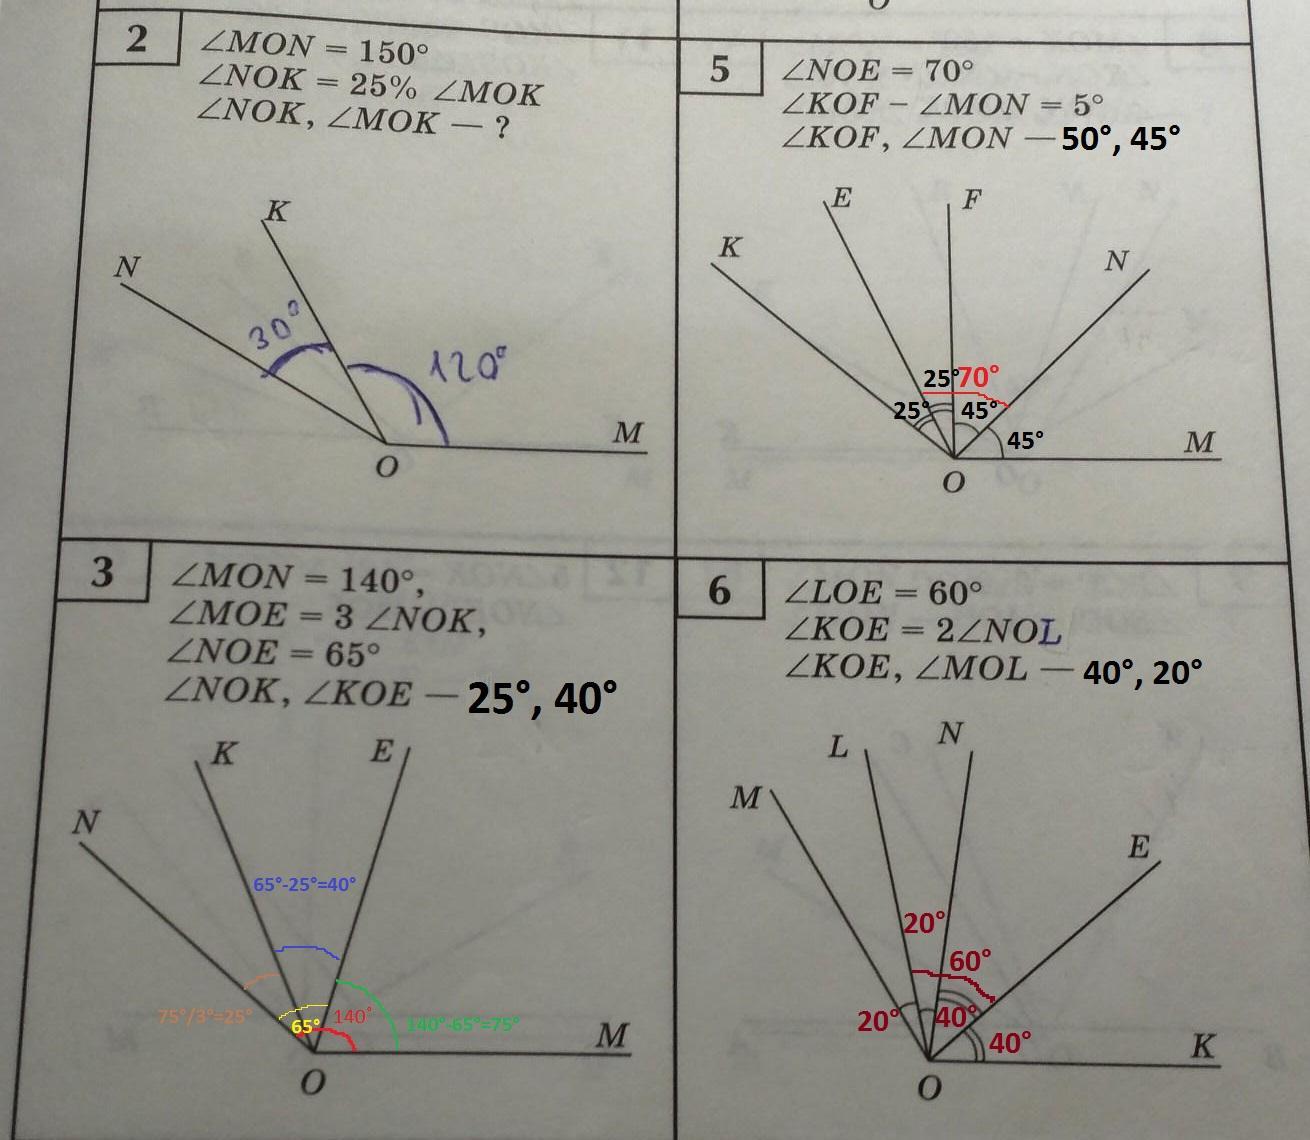 O
2
∠MON = 150°
∠NOK = 25% ∠MOK
∠NOK, ∠MOK — ?
K
N
30°
120°
M
O
5
∠NOE = 70°
∠KOF – ∠MON = 5°
∠KOF, ∠MON — 50°, 45°
E
F
K
N
25°
70°
25°
45°
45°
M
O
3
∠MON = 140°,
∠MOE = 3 ∠NOK,
∠NOE = 65°
∠NOK, ∠KOE — 25°, 40°
K
E
N
65°-25°=40°
75°/3°=25°
65°
140°
140°-65°=75°
M
O
6
∠LOE = 60°
∠KOE = 2∠NOL
∠KOE, ∠MOL — 40°, 20°
L
N
M
E
20°
60°
20°
40°
40°
K
O